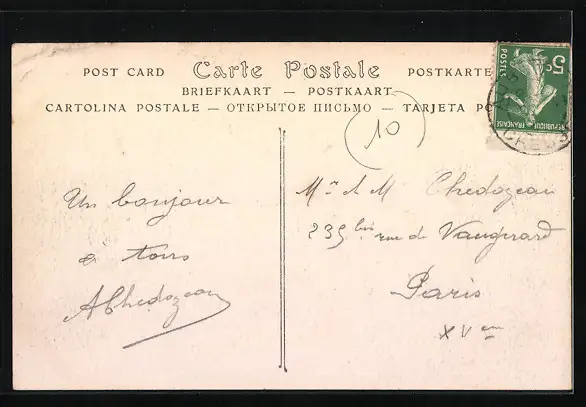 POST CARD Carte Postale POSTKARTE
BRIEFKAART — POSTKAART
CARTOLINA POSTALE — ОТКРЫТОЕ ПИСЬМО — TARJETA PO
5c
POSTES
REPUBLIQUE FRANÇAISE
10
Un bonjour
a tous
AChedozeau
Mr et M Chedozeau
235bis rue de Vaugirard
Paris
XVem